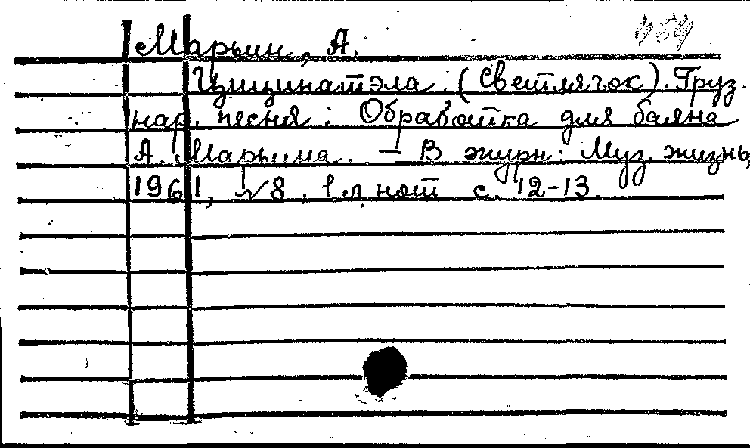 Марьин, А.
Цицинатэла (Светлячок). Груз.
нар. песня: Обработка для баяна
А. Марьина. — В журн: Муз. жизнь,
1961, №8, 1 л. нот с. 12-13.